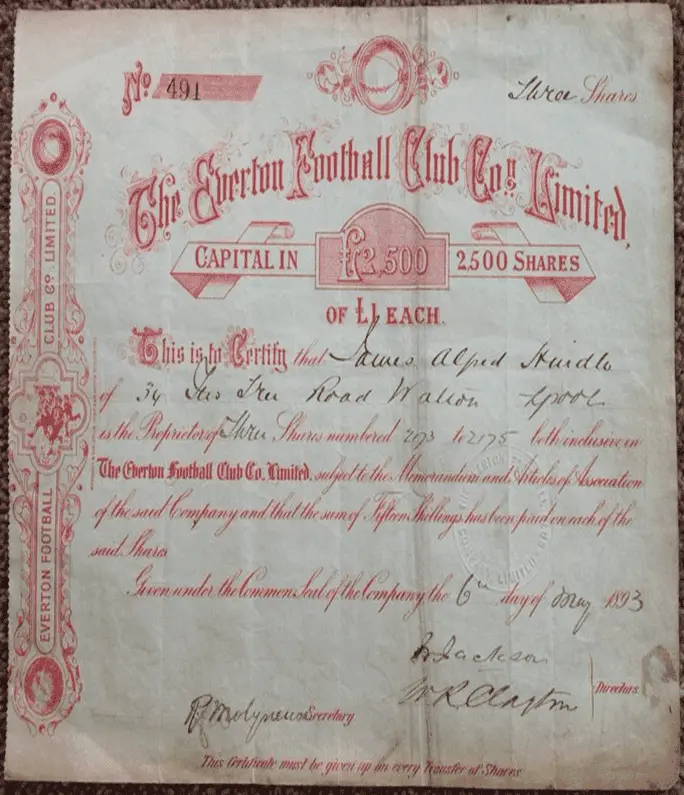 No 491
Three Shares
The Everton Football Club Coy. Limited,
CAPITAL IN £2,500 2,500 SHARES
OF £1 EACH.
This is to Certify that James Alfred Hindle
of 34 Road Walton Lpool
is the Proprietor of Three Shares numbered 2173 to 2175 both inclusive in
The Everton Football Club Co. Limited, subject to the Memorandum and Articles of Association
of the said Company and that the sum of Fifteen Shillings has been paid on each of the
said Shares
Given under the Common Seal of the Company the 6th day of May 1893
Jackson
W R Clayton
Directors
R Molyneux Secretary
This Certificate must be given up on every Transfer of Shares
EVERTON FOOTBALL CLUB CO. LIMITED.